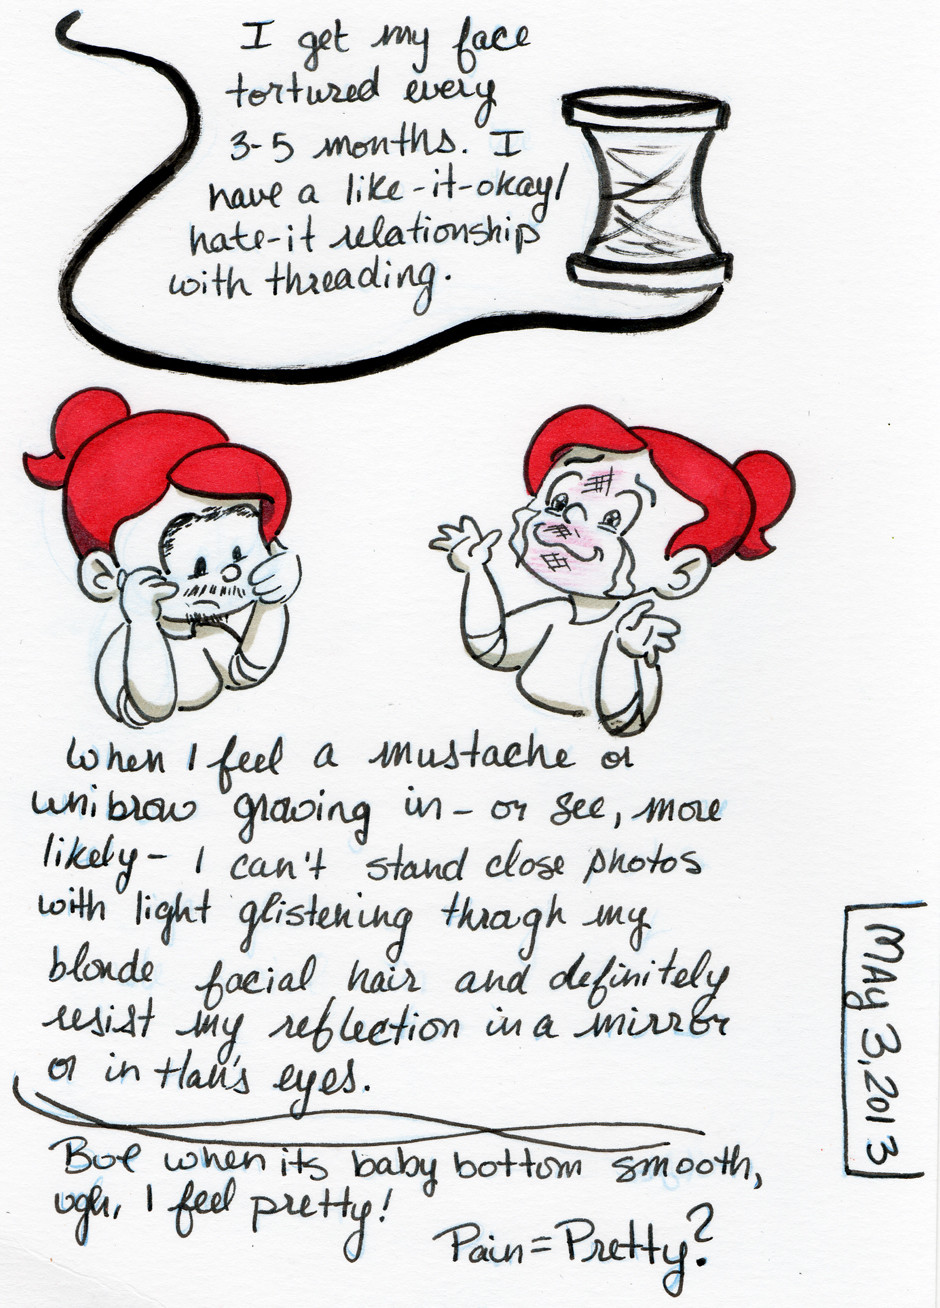 I get my face
tortured every
3-5 months. I
have a like-it-okay/
hate-it relationship
with threading.
When I feel a mustache or
unibrow growing in - or see, more
likely - I can't stand close photos
with light glistening through my
blonde facial hair and definitely
resist my reflection in a mirror
or in Hau's eyes.
But when its baby bottom smooth,
ugh, I feel pretty!
Pain = Pretty?
MAy 3, 2013